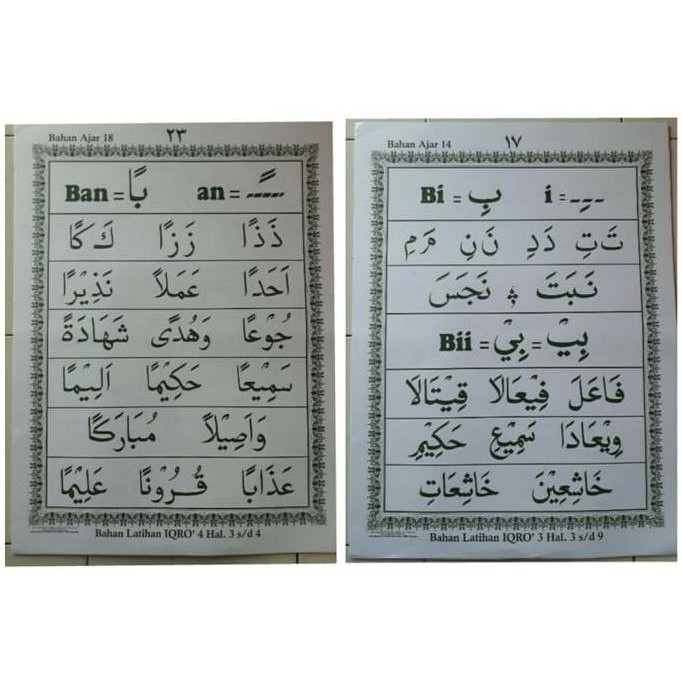 Bahan Ajar 18 ٢٣
Ban = بًا an = ـًـ
ذَذًا زَزًا كَ كًا
اَحَدًا عَمَلاً نَذِيْرًا
جُوْعًا وَهُدًى شَهَادَةً
سَمِيْعًا حَكِيْمًا اَلِيْمًا
وَاَصِيْلاً مُبَارَكًا
عَذَابًا قُرُوْنًا عَلِيْمًا
Bahan Latihan IQRO' 4 Hal. 3 s/d 4
Bahan Ajar 14 ١٧
Bi = بِ i = ـِـ
تَتِ دَدِ نَنِ مَ مِ
نَبَتَ نَجَسَ
Bii = بِيْ = بِيْـ
فَاعَلَ فِيْعَالَا قِيْتَالَا
وِيْعَادَا سَمِيْعِ حَكِيْمِ
خَاشِعِيْنَ خَاشِعَاتِ
Bahan Latihan IQRO' 3 Hal. 3 s/d 9